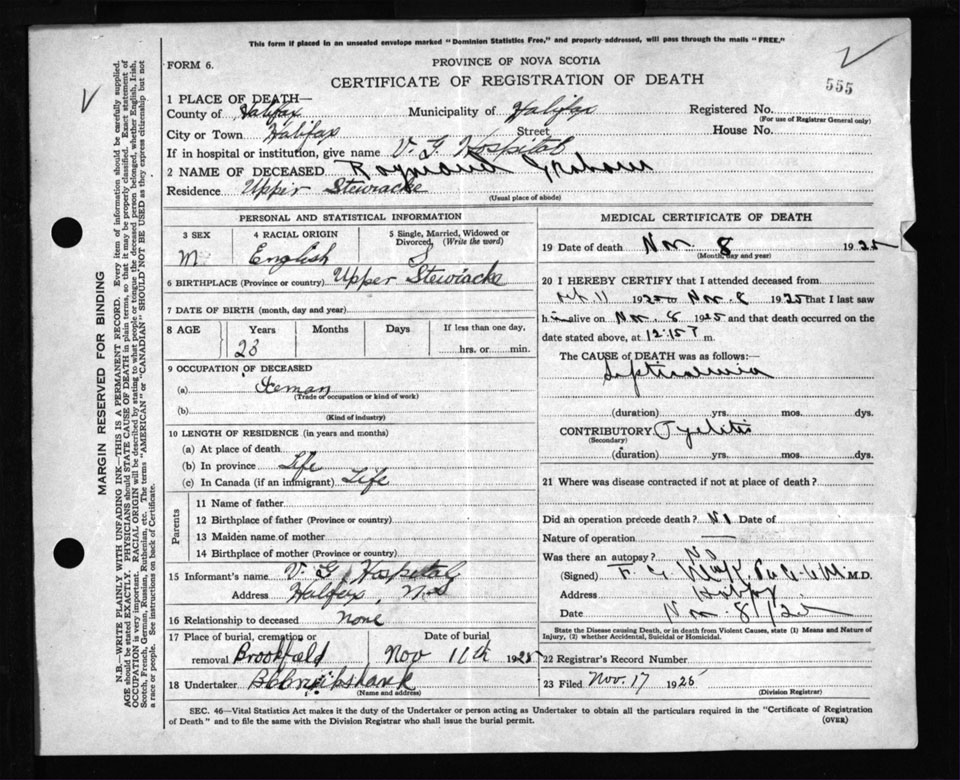 This form if placed in an unsealed envelope marked "Dominion Statistics Free," and properly addressed, will pass through the mails "FREE."
FORM 6.
PROVINCE OF NOVA SCOTIA
CERTIFICATE OF REGISTRATION OF DEATH
555
1 PLACE OF DEATH—
County of Halifax Municipality of Halifax Registered No.
(For use of Registrar General only)
City or Town Halifax Street House No.
If in hospital or institution, give name V. G. Hospital
2 NAME OF DECEASED Raymond Graham
Residence Upper Stewiacke
(Usual place of abode)
PERSONAL AND STATISTICAL INFORMATION
3 SEX 4 RACIAL ORIGIN 5 Single, Married, Widowed or Divorced, (Write the word)
M. English S
6 BIRTHPLACE (Province or country) Upper Stewiacke
7 DATE OF BIRTH (month, day and year)
8 AGE Years Months Days If less than one day,
23 hrs. or min.
9 OCCUPATION OF DECEASED
(a)
(Trade or occupation or kind of work)
(b)
(Kind of industry)
10 LENGTH OF RESIDENCE (in years and months)
(a) At place of death
(b) In province Life
(c) In Canada (if an immigrant) Life
Parents
11 Name of father
12 Birthplace of father (Province or country)
13 Maiden name of mother
14 Birthplace of mother (Province or country)
15 Informant's name V. G. Hospital
Address Halifax, N.S
16 Relationship to deceased None
17 Place of burial, cremation or Date of burial
removal Brookfield Nov 11th 1925
18 Undertaker
(Name and address)
MEDICAL CERTIFICATE OF DEATH
19 Date of death Nov. 8 1925
(Month, day and year)
20 I HEREBY CERTIFY that I attended deceased from
11 1925 to Nov. 8 1925 that I last saw
him alive on Nov. 8 1925 and that death occurred on the
date stated above, at 12.15 P m.
The CAUSE of DEATH was as follows:—
Septicaemia
(duration) yrs. mos. dys.
CONTRIBUTORY Pyelitis
(Secondary)
(duration) yrs. mos. dys.
21 Where was disease contracted if not at place of death?
Did an operation precede death? No Date of
Nature of operation —
Was there an autopsy? No
(Signed) F. G. M.D.
Address Halifax
Date Nov. 8/25
State the Disease causing Death, or in death from Violent Causes, state (1) Means and Nature of Injury, (2) whether Accidental, Suicidal or Homicidal.
22 Registrar's Record Number
23 Filed Nov. 17 1925
(Division Registrar)
SEC. 46—Vital Statistics Act makes it the duty of the Undertaker or person acting as Undertaker to obtain all the particulars required in the "Certificate of Registration
of Death" and to file the same with the Division Registrar who shall issue the burial permit. (OVER)
MARGIN RESERVED FOR BINDING
N.B.—WRITE PLAINLY WITH UNFADING INK—THIS IS A PERMANENT RECORD. Every item of information should be carefully supplied.
AGE should be stated EXACTLY. PHYSICIANS should STATE CAUSE OF DEATH in plain terms, so that it may be properly classified. Exact statement of
OCCUPATION is very important. RACIAL ORIGIN will be described by stating to what people or tongue the deceased person belonged, whether English, Irish,
Scotch, French, German, Russian, Ruthenian, etc. The terms "AMERICAN" or "CANADIAN" SHOULD NOT BE USED as they express citizenship but not
a race or people. See instructions on back of Certificate.